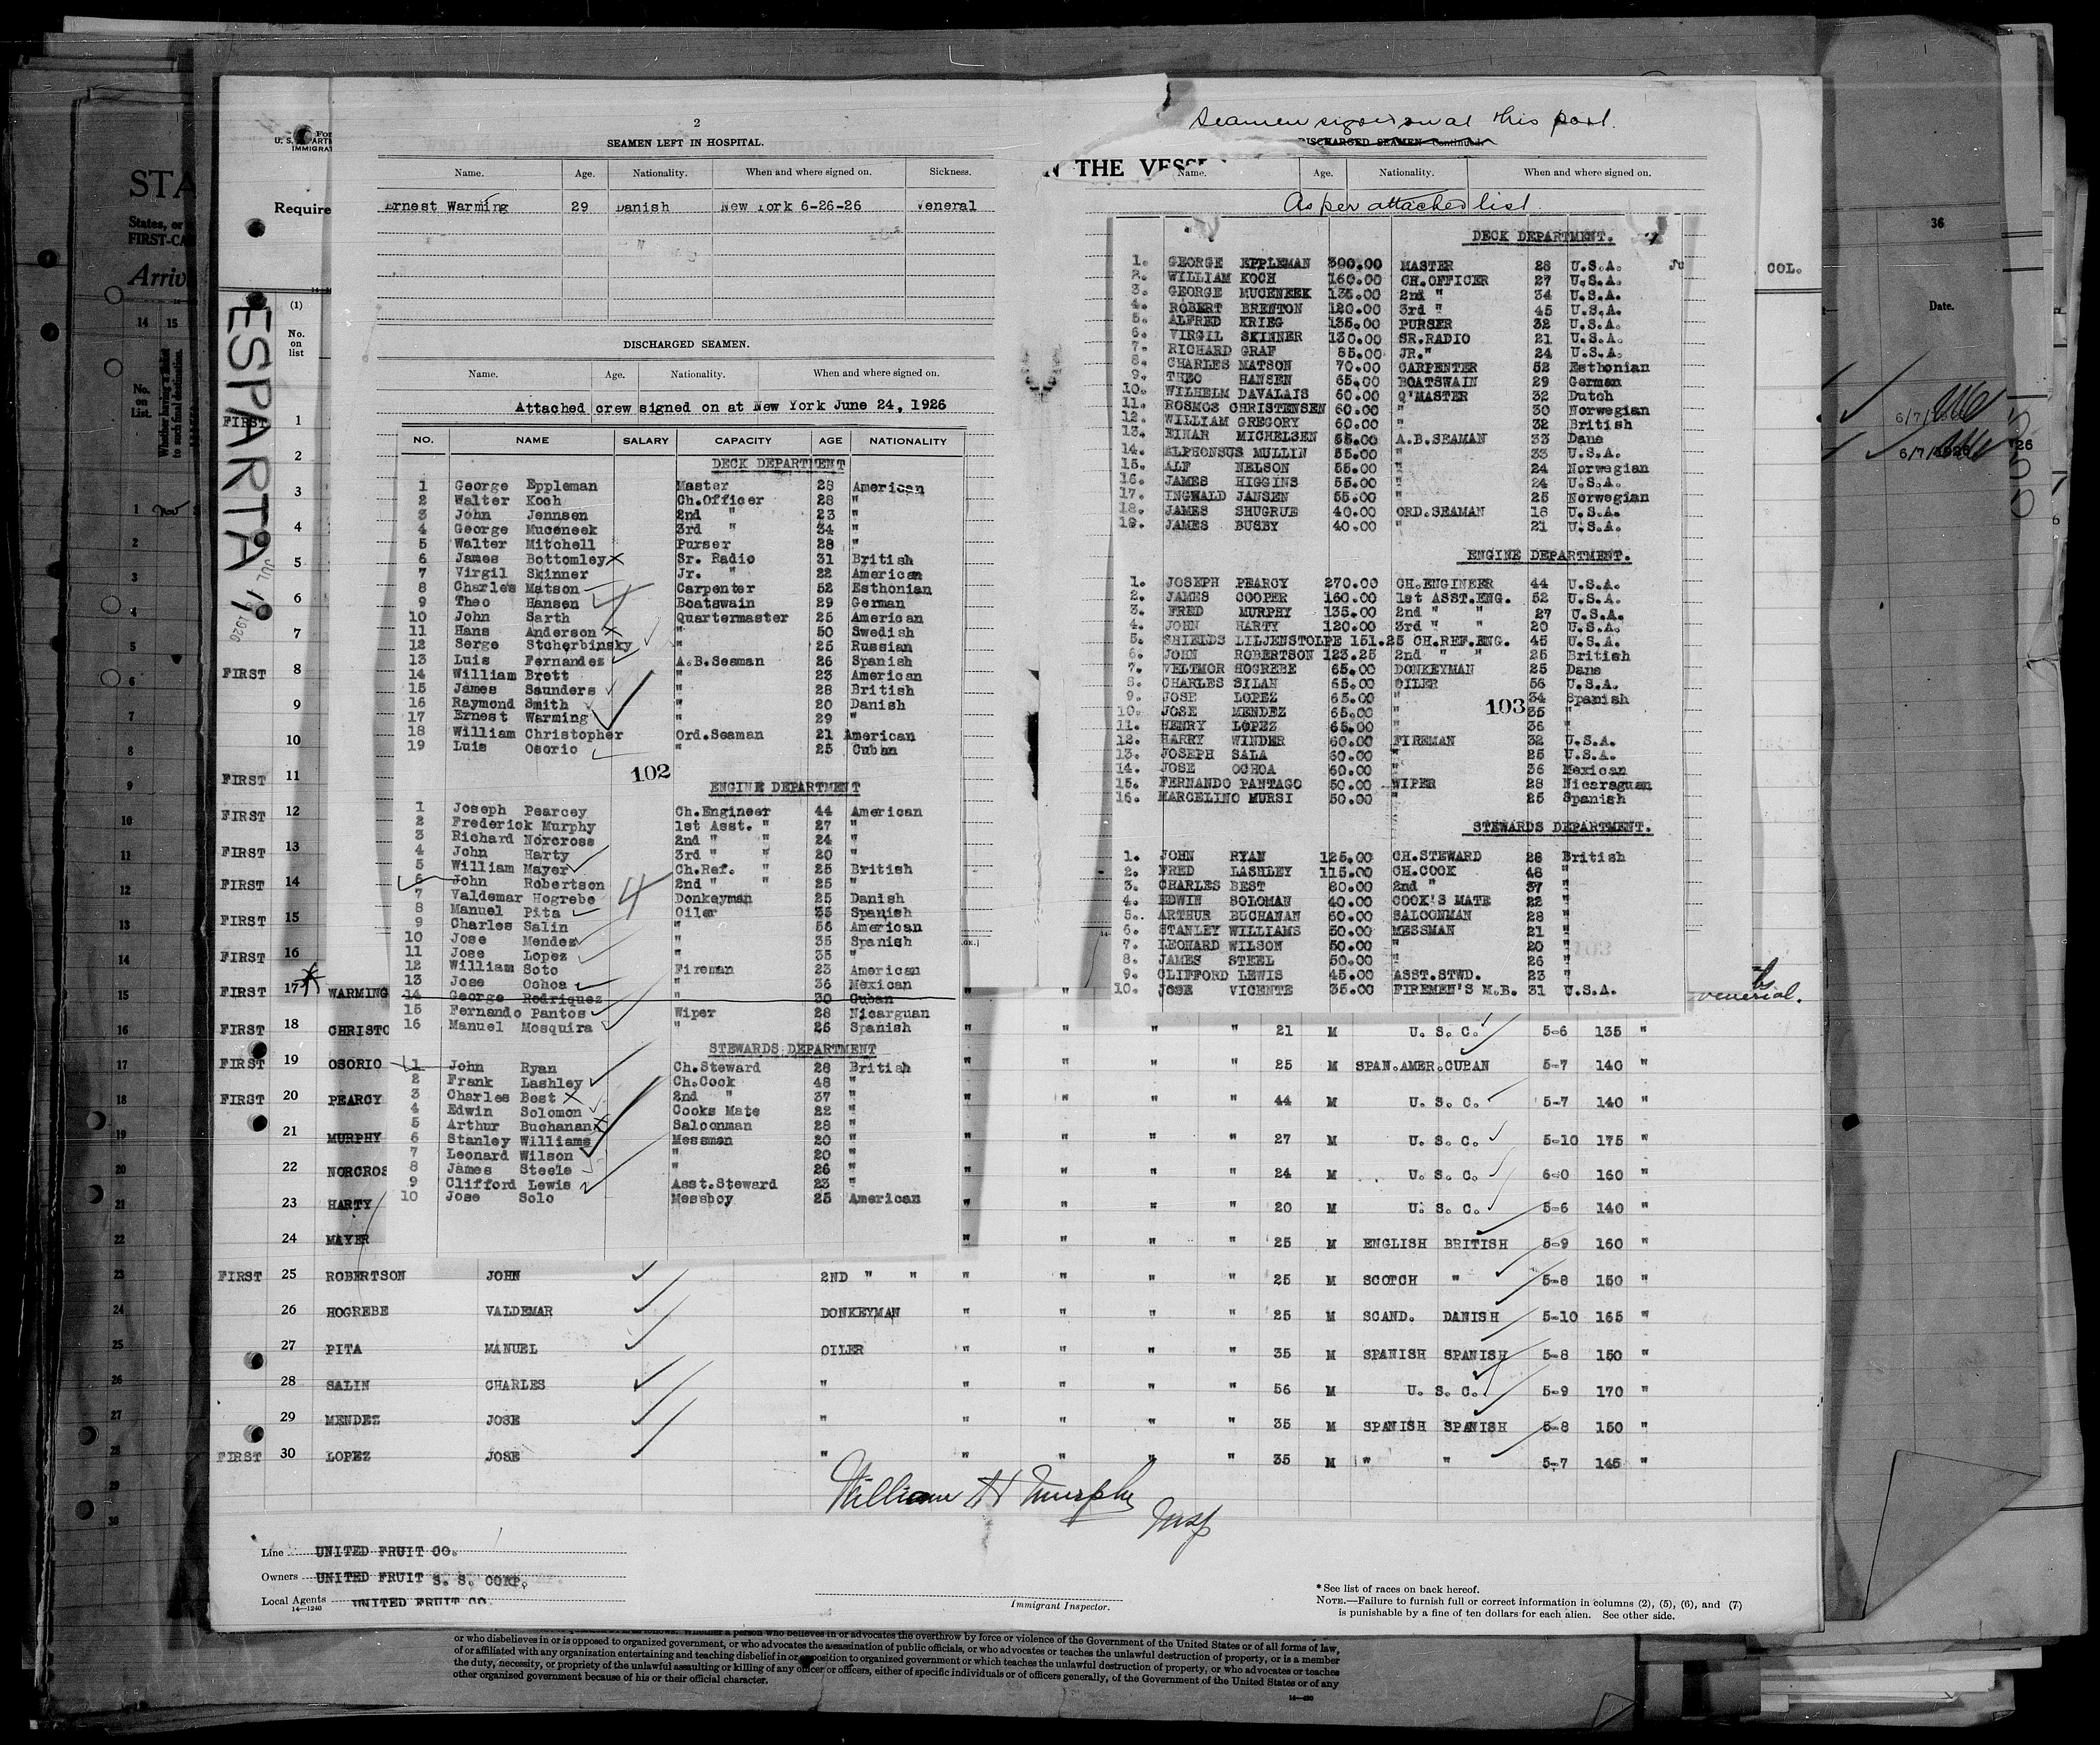 2
SEAMEN LEFT IN HOSPITAL.
Name. Age. Nationality. When and where signed on. Sickness.
Ernest Warming 29 Danish New York 6-26-26 Veneral
DISCHARGED SEAMEN.
Name. Age. Nationality. When and where signed on.
Attached crew signed on at New York June 24, 1926
NO. NAME SALARY CAPACITY AGE NATIONALITY
DECK DEPARTMENT
1 George Eppleman Master 28 American
2 Walter Koch Ch.Officer 28 "
3 John Jennsen 2nd " 23 "
4 George Muceneek 3rd " 34 "
5 Walter Mitchell Purser 28 "
6 James Bottomley Sr. Radio 31 British
7 Virgil Skinner Jr. " 22 American
8 Charles Matson Carpenter 52 Esthonian
9 Theo Hansen Boatswain 29 German
10 John Sarth Quartermaster 25 American
11 Hans Anderson " 50 Swedish
12 Serge Stcherbinsky " 25 Russian
13 Luis Fernandez A.B.Seaman 26 Spanish
14 William Brett " 23 American
15 James Saunders " 28 British
16 Raymond Smith " 20 Danish
17 Ernest Warming " 29 "
18 William Christopher Ord.Seaman 21 American
19 Luis Osorio " 25 Cuban
102
ENGINE DEPARTMENT
1 Joseph Pearcey Ch.Engineer 44 American
2 Frederick Murphy 1st Asst. " 27 "
3 Richard Norcross 2nd " " 24 "
4 John Harty 3rd " " 20 "
5 William Mayer Ch.Ref. " 25 British
6 John Robertson 2nd " " 25 "
7 Valdemar Hogrebe Donkeyman 25 Danish
8 Manuel Pita Oiler 35 Spanish
9 Charles Salin " 56 American
10 Jose Mendez " 35 Spanish
11 Jose Lopez " 35 "
12 William Soto Fireman 23 American
13 Jose Ochoa " 36 Mexican
14 George Rodriquez " 30 Cuban
15 Fernando Pantos Wiper 28 Nicarguan
16 Manuel Mosquira " 25 Spanish
STEWARDS DEPARTMENT
1 John Ryan Ch.Steward 28 British
2 Frank Lashley Ch.Cook 48 "
3 Charles Best 2nd " 37 "
4 Edwin Solomon Cooks Mate 22 "
5 Arthur Buchanan Saloonman 28 "
6 Stanley Williams Messman 20 "
7 Leonard Wilson " 20 "
8 James Steele " 26 "
9 Clifford Lewis Asst.Steward 23 "
10 Jose Solo Messboy 25 American
Seamen signed on at this port.
DISCHARGED SEAMEN Continued.
N THE VESS
Name. Age. Nationality. When and where signed on.
As per attached list.
DECK DEPARTMENT.
1. GEORGE EPPLEMAN 300.00 MASTER 28 U.S.A.
2. WILLIAM KOCH 160.00 CH.OFFICER 27 U.S.A.
3. GEORGE MUCENEEK 135.00 2nd " 34 U.S.A.
4. ROBERT BRENTON 120.00 3rd " 45 U.S.A.
5. ALFRED KRIEG 135.00 PURSER 32 U.S.A.
6. VIRGIL SKINNER 130.00 SR.RADIO 21 U.S.A.
7. RICHARD GRAF 85.00 JR." 24 U.S.A.
8. CHARLES MATSON 70.00 CARPENTER 52 Esthonian
9. THEO HANSEN 65.00 BOATSWAIN 29 German
10. WILHELM DAVALAIS 60.00 Q'MASTER 32 Dutch
11. ROSMOS CHRISTENSEN 60.00 " 30 Norwegian
12. WILLIAM GREGORY 60.00 " 32 British
13. EINAR MICHELSEN 55.00 A.B.SEAMAN 33 Dane
14. ALPHONSUS MULLIN 55.00 " 33 U.S.A.
15. ALF NELSON 55.00 " 24 Norwegian
16. JAMES HIGGINS 55.00 " 24 U.S.A.
17. INGWALD JANSEN 55.00 " 25 Norwegian
18. JAMES SHUGRUE 40.00 ORD.SEAMAN 18 U.S.A.
19. JAMES BUSBY 40.00 " 21 U.S.A.
ENGINE DEPARTMENT.
1. JOSEPH PEARCY 270.00 CH.ENGINEER 44 U.S.A.
2. JAMES COOPER 160.00 1st ASST.ENG. 52 U.S.A.
3. FRED MURPHY 135.00 2nd " " 27 U.S.A.
4. JOHN HARTY 120.00 3rd " " 20 U.S.A.
5. SHIENDS LILJENSTOLPE 151.25 CH.REF.ENG. 45 U.S.A.
6. JOHN ROBERTSON 123.25 2nd " " 25 British
7. VELTMOR HOGREBE 65.00 DONKEYMAN 25 Dane
8. CHARLES SILAN 65.00 OILER 56 U.S.A.
9. JOSE LOPEZ 65.00 " 34 Spanish
103
10. JOSE MENDEZ 65.00 " 35 "
11. HENRY LOPEZ 65.00 " 35 "
12. HARRY WINDER 60.00 FIREMAN 32 U.S.A.
13. JOSEPH SALA 60.00 " 25 U.S.A.
14. JOSE OCHOA 60.00 " 36 Mexican
15. FERNANDO PANTAGO 50.00 WIPER 28 Nicaraguan
16. MARCELINO MURSI 50.00 " 25 Spanish
STEWARDS DEPARTMENT.
1. JOHN RYAN 125.00 CH.STEWARD 28 British
2. FRED LASHLEY 115.00 CH.COOK 48 "
3. CHARLES BEST 80.00 2nd " 37 "
4. EDWIN SOLOMAN 40.00 COOK'S MATE 22 "
5. ARTHUR BUCHANAN 60.00 SALOONMAN 28 "
6. STANLEY WILLIAMS 50.00 MESSMAN 21 "
7. LEONARD WILSON 50.00 " 20 "
8. JAMES STEEL 50.00 " 26 "
9. CLIFFORD LEWIS 45.00 ASST.STWD. 23 "
10. JOSE VICENTE 35.00 FIREMEN'S M.B. 31 U.S.A.
Require
ESPARTA
JUL 1926
(1)
No.
on
list
FIRST 1
2
3
4
5
6
7
FIRST 8
9
10
FIRST 11
FIRST 12
FIRST 13
FIRST 14
FIRST 15
FIRST 16
FIRST 17 WARMING " " venerial.
FIRST 18 CHRISTO " " " " 21 M U. S. C. 5-6 135 "
FIRST 19 OSORIO " " " " 25 M SPAN.AMER.CUBAN 5-7 140 "
FIRST 20 PEARCY " " " " 44 M U. S. C. 5-7 140 "
21 MURPHY " " " " 27 M U. S. C. 5-10 175 "
22 NORCROS " " " " 24 M U. S. C. 6-0 160 "
23 HARTY " " " " 20 M U. S. C. 5-6 140 "
24 MAYER " " " " 25 M ENGLISH BRITISH 5-9 160 "
FIRST 25 ROBERTSON JOHN 2ND " " " " " " 25 M SCOTCH " 5-8 150 "
26 HOGREBE VALDEMAR DONKEYMAN " " " " 25 M SCAND. DANISH 5-10 165 "
27 PITA MANUEL OILER " " " " 35 M SPANISH SPANISH 5-8 150 "
28 SALIN CHARLES " " " " " 56 M U. S. C. 5-9 170 "
29 MENDEZ JOSE " " " " " 35 M SPANISH SPANISH 5-8 150 "
FIRST 30 LOPEZ JOSE " " " " " 35 M " " 5-7 145 "
William H Murphy
Insp
Line UNITED FRUIT CO.
Owners UNITED FRUIT S. S. CORP.
Local Agents UNITED FRUIT CO.
14—1240
Immigrant Inspector.
* See list of races on back hereof.
NOTE.—Failure to furnish full or correct information in columns (2), (5), (6), and (7)
is punishable by a fine of ten dollars for each alien. See other side.
STA
States, or
FIRST-CA
Arriv
14 15
No.
on
List.
Whether having a ticket
to such final destination.
COL.
36
Date.
or who disbelieves in or is opposed to organized government, or who advocates the assassination of public officials, or who advocates or teaches the unlawful destruction of property, or is a member
of or affiliated with any organization entertaining and teaching disbelief in or opposition to organized government or which teaches the unlawful destruction of property, or who advocates or teaches
the duty, necessity, or propriety of the unlawful assaulting or killing of any officer or officers, either of specific individuals or of officers generally, of the Government of the United States or of any
other organized government because of his or their official character.